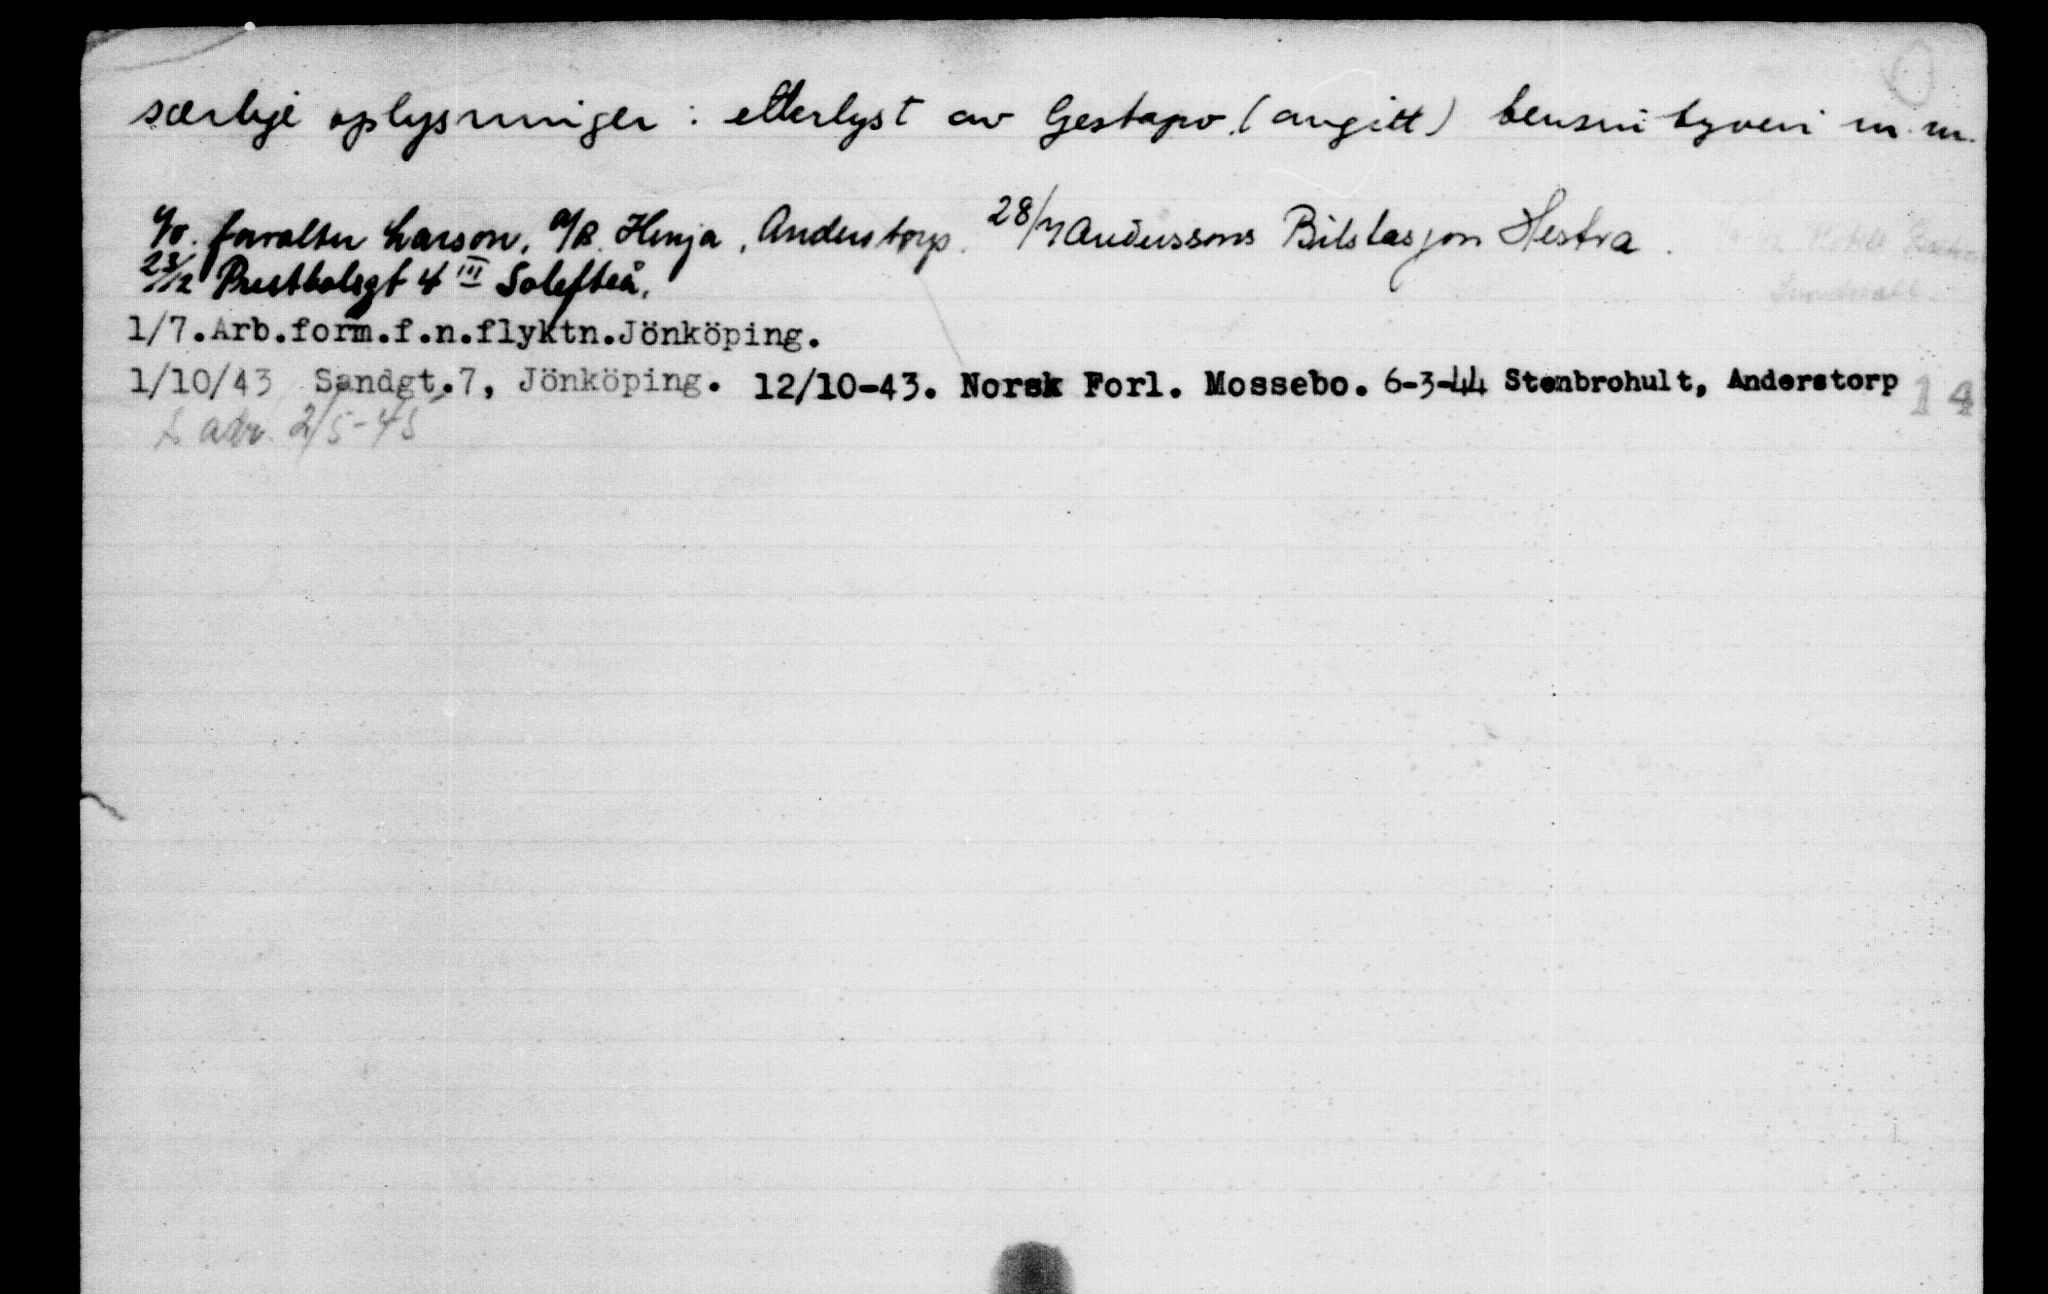 særlige oplysninger : etterlyst av Gestapo. (angitt) bensintyveri m.m.
c/o. forvalter Larson, A/B. Henja, Anderstorp. 28/7 Anderssons Bilstasjon Hestra.
23/12 Prestbolsgt 4 III Solefteå.
1/7.Arb.form.f.n.flyktn.Jönköping.
1/10/43 Sandgt.7, Jönköping. 12/10-43. Norsk Forl. Mossebo. 6-3-44 Stenbrohult, Anderstorp 14
adr. 2/5-45